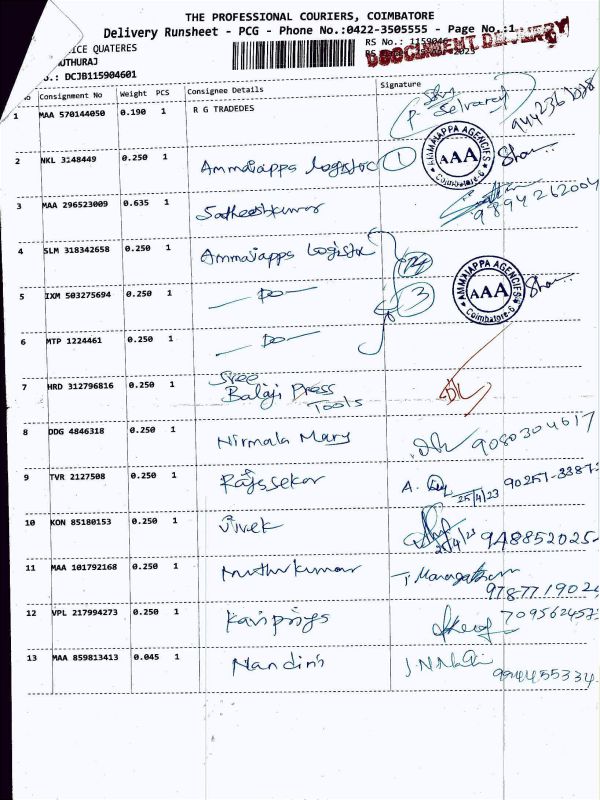 THE PROFESSIONAL COURIERS, COIMBATORE
Delivery Runsheet - PCG - Phone No.:0422-3505555 - Page No.:1
ICE QUATERES
UTHURAJ
.: DCJB115904601
RS No.: 1159046
2023
DOCUMENT DELIVERY
Consignment No Weight PCS Consignee Details Signature
1 MAA 570144050 0.190 1 R G TRADEDES P. Selvaraj 9442361028
2 NKL 3148449 0.250 1 Ammaiapps Logistic 1 AMMAIAPPA AGENCIES AAA Coimbatore-6
3 MAA 296523009 0.635 1 Satheeshkumar 9894262004
4 SLM 318342658 0.250 1 Ammaiapps Logistic
5 IXM 503275694 0.250 1 — Do — 3 AMMAIAPPA AGENCIES AAA Coimbatore-6
6 MTP 1224461 0.250 1 — Do —
7 HRD 312796816 0.250 1 Sree Balaji Press Tools
8 DDG 4846318 0.250 1 Nirmala Mary 9080304617
9 TVR 2127508 0.250 1 Rajssekar A. 25/4/23 90251-3387
10 KON 85180153 0.250 1 Vivek 25/4/23 948852025
11 MAA 101792168 0.250 1 Muthukumar T. Maragatham 978771902
12 VPL 217994273 0.250 1 Kavipriya 709562457
13 MAA 859813413 0.045 1 Nandini 9944455334